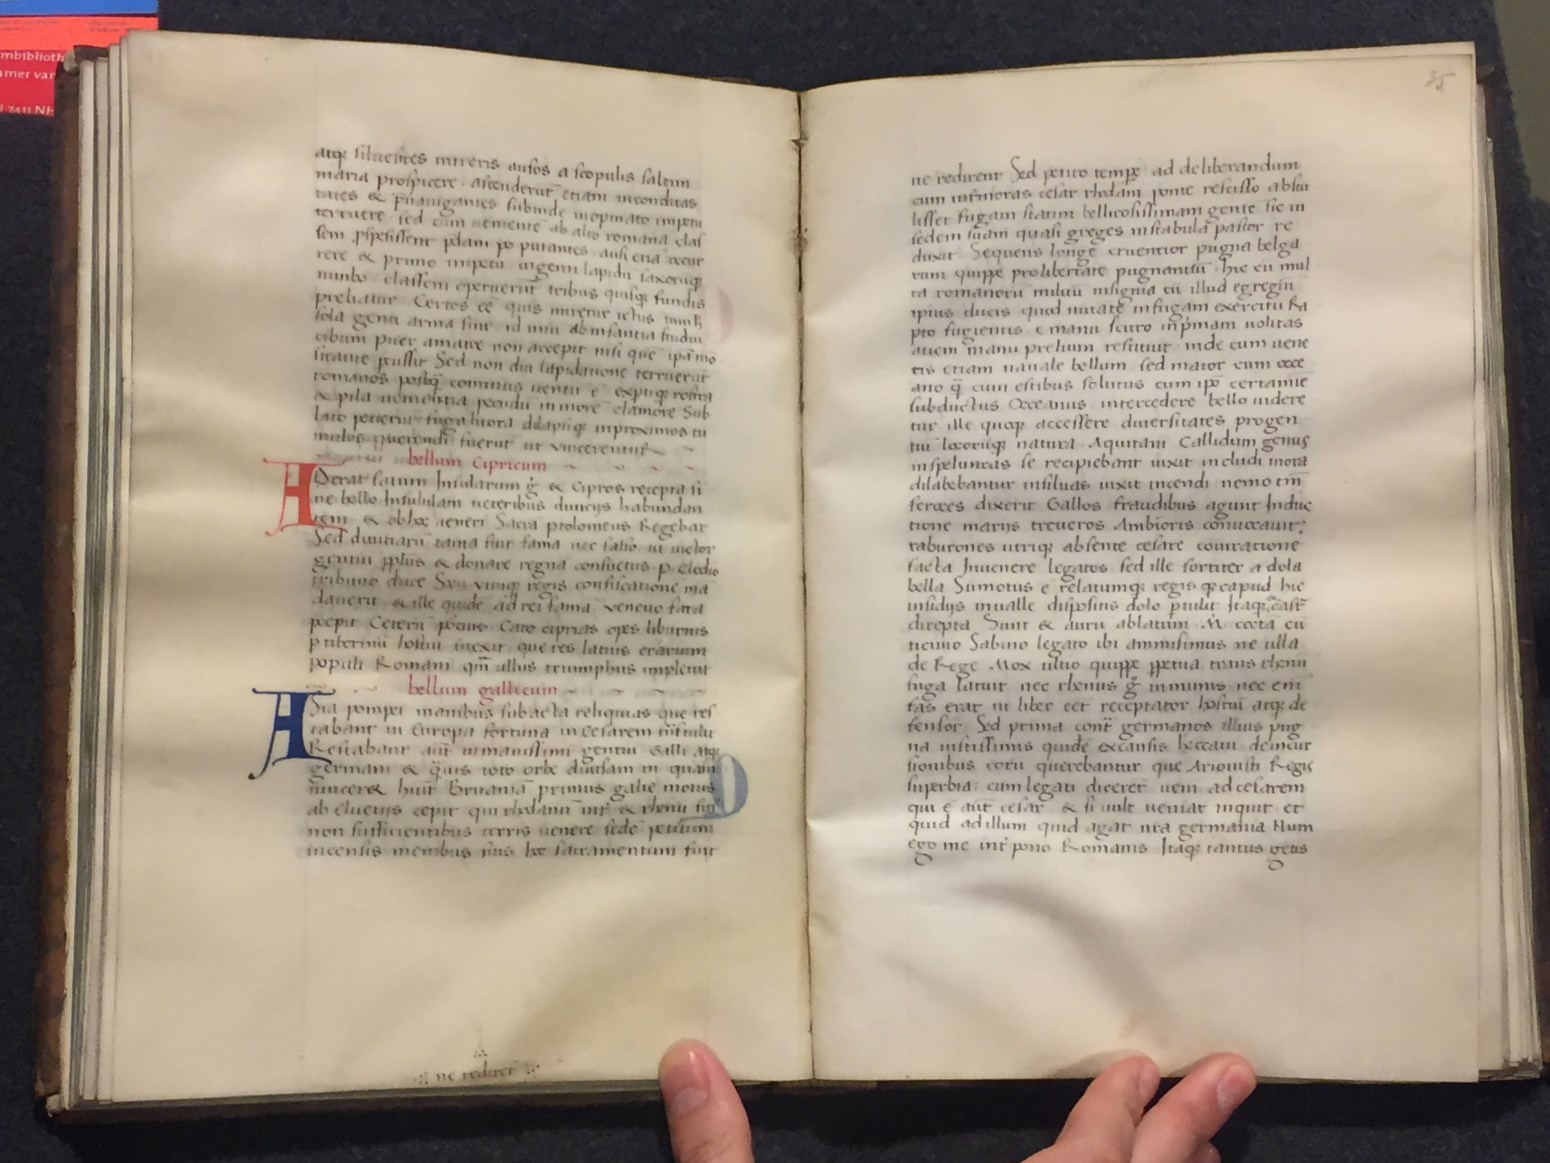 mbiblioth
amer van
atq; siluestres miseris ausos a scopulis saltim
maria prospicere. ascenderũt etiam inconditas
rates & p̃nauigantes subinde inopinato impetu
terruere sed cum uemente ab alto romana clas
rere & primo impetu ingenti lapidũ saxorũq;
nimbo classem operuerũt tribus quisq; fundis
preliatur Certos eẽ quis miretur ictus
sola genti arma sint id unũ ab infantia studiũ
cibum puer a matre non accepit nisi quẽ ipã mõ
strante Sed non diu lapidatione terruerũt
romanos postq̃ cominus uentũ ẽ
& pila in morẽ clamore sub
lato petierũt fuga litora dilapsiq; in proximos tu
mulos querendi fuerũt ut uincerentur
bellum Cipricum
ADerat fatum Insularum g̃ & Cipros recepta si
ne bello Insulam ueteribus diuicijs habundan
tem & ob hoc ueneri Sacra ptolomeus Regebat
Sed diuitiarũ tanta fuit fama nec falso ut uictor
gentiũ pplus & donare regna consuetus p. clodio
tribuno duce regis confiscationẽ mã
dauerit & ille quidẽ ad rei famã ueneno fata
p̃cepit Ceterũ Cato ciprias opes liburnis
p tiberinũ hostiũ inuexit que res latius erarium
populi Romani qm̃ ullus triumphus impleuit
bellum gallicum
ASia pompei manibus subacta reliquias que res
tabant in Europa fortuna in cesarem trãstulit
Restabant aũt inmanissimi gentiũ Galli atq;
germani & q̃uis toto orbe diuisam tñ quam
uincere huic Britaniã primus galie motus
ab eluetijs cepit qui rhodanũ inť & rhenũ siti
non sufficientibus terris uenere sedẽ petitum
incensis menibus suis hoc sacramentum fuit
ne redirẽt
35
ne redirent Sed petito tempẽ ad deliberandum
cum inť moras cesar rhodani ponte rescisso abstu
lisset fugam statum bellicosissimam gentẽ sic in
sedem suam quasi greges in stabula pastor re
duxit Sequens longe cruentior pugna belga
rum quippe pro libertate pugnantiũ hic cũ mul
ta romanorũ militũ insignia tũ illud egregiũ
ipius ducis quod nutãte in fugam exercitu Ra
pto fugientis e manu scuto in p̃mam uolitãs
aciem manu prelium restituit inde cum uene
tis etiam nauale bellum sed maior cum occe
ano q̃ cum estibus solutus cum ipõ certamie
subductus Occeanus intercedere bello uidere
tur ille quoq; accessere diuersitates progen
tiũ locorũq; natura Aquitani Callidum genus
in speluncas se recipiebant iuxit includi morã
dilabebantur in siluas iuxit incendi nemo tm̃
feroces dixerit Gallos fraudibus agunt Induc
tione marijs treueros Ambiorix conuocauit;
taburones utriq; absente cesare coniuratione
facta Inuenere legatos sed ille fortiter a dola
bella Sumotus ẽ relatumq; regis q; capud hic
insidijs in ualle dispositis dolo ptulit Itaq; castr̃
direpta Sunt & aurũ ablatum M. cocta cũ
ticurio Sabino legato ibi ammisimus ne ulla
de Rege Mox ultio quippe ppetua trans rhenũ
fuga latuit nec rhenus g̃ inmunis nec eni
fas erat ut liber eet receptator hostiũ atq; de
fensor Sed prima conť germanos illius pug
na iustissimis quidẽ ex causis
sionibus eorũ querebantur que Ariouisti Regis
superbia cum legati diceret ueni ad cesarem
qui ẽ aũt cesar & si uult ueniat inquit et
quid ad illum quid agat nrã germania Num
ego me inť pono Romanis Itaq; tantus gẽtis